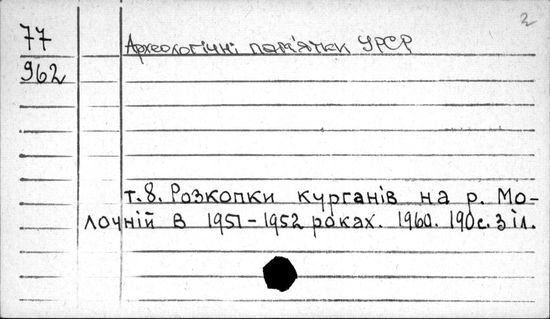 2
77 Археологічні пам'ятки УРСР
962
т. 8. Розкопки курганів на р. Мо-
лочній в 1951-1952 роках. 1960. 190с. з іл.